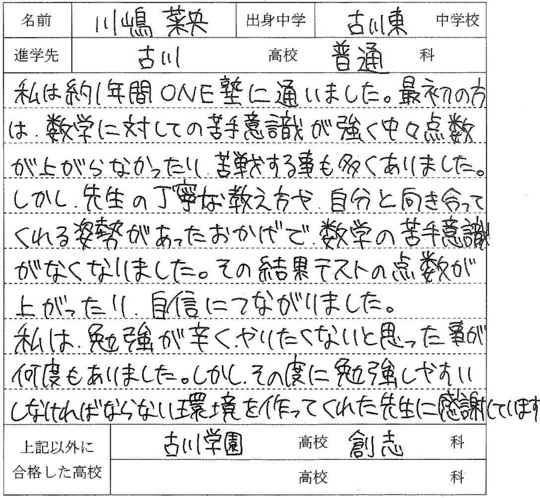 名前 川嶋 菜央 出身中学 古川東 中学校
進学先 古川 高校 普通 科
私は約1年間ONE塾に通いました。最初の方
は、数学に対しての苦手意識が強く中々点数
が上がらなかったり、苦戦する事も多くありました。
しかし、先生の丁寧な教え方や、自分と向き合って
くれる姿勢があったおかげで、数学の苦手意識
がなくなりました。その結果テストの点数が
上がったり、自信につながりました。
私は、勉強が辛く、やりたくないと思った事が
何度もありました。しかし、その度に勉強しやすい
しなければならない環境を作ってくれた先生に感謝しています
上記以外に 古川学園 高校 創志 科
合格した高校 高校 科